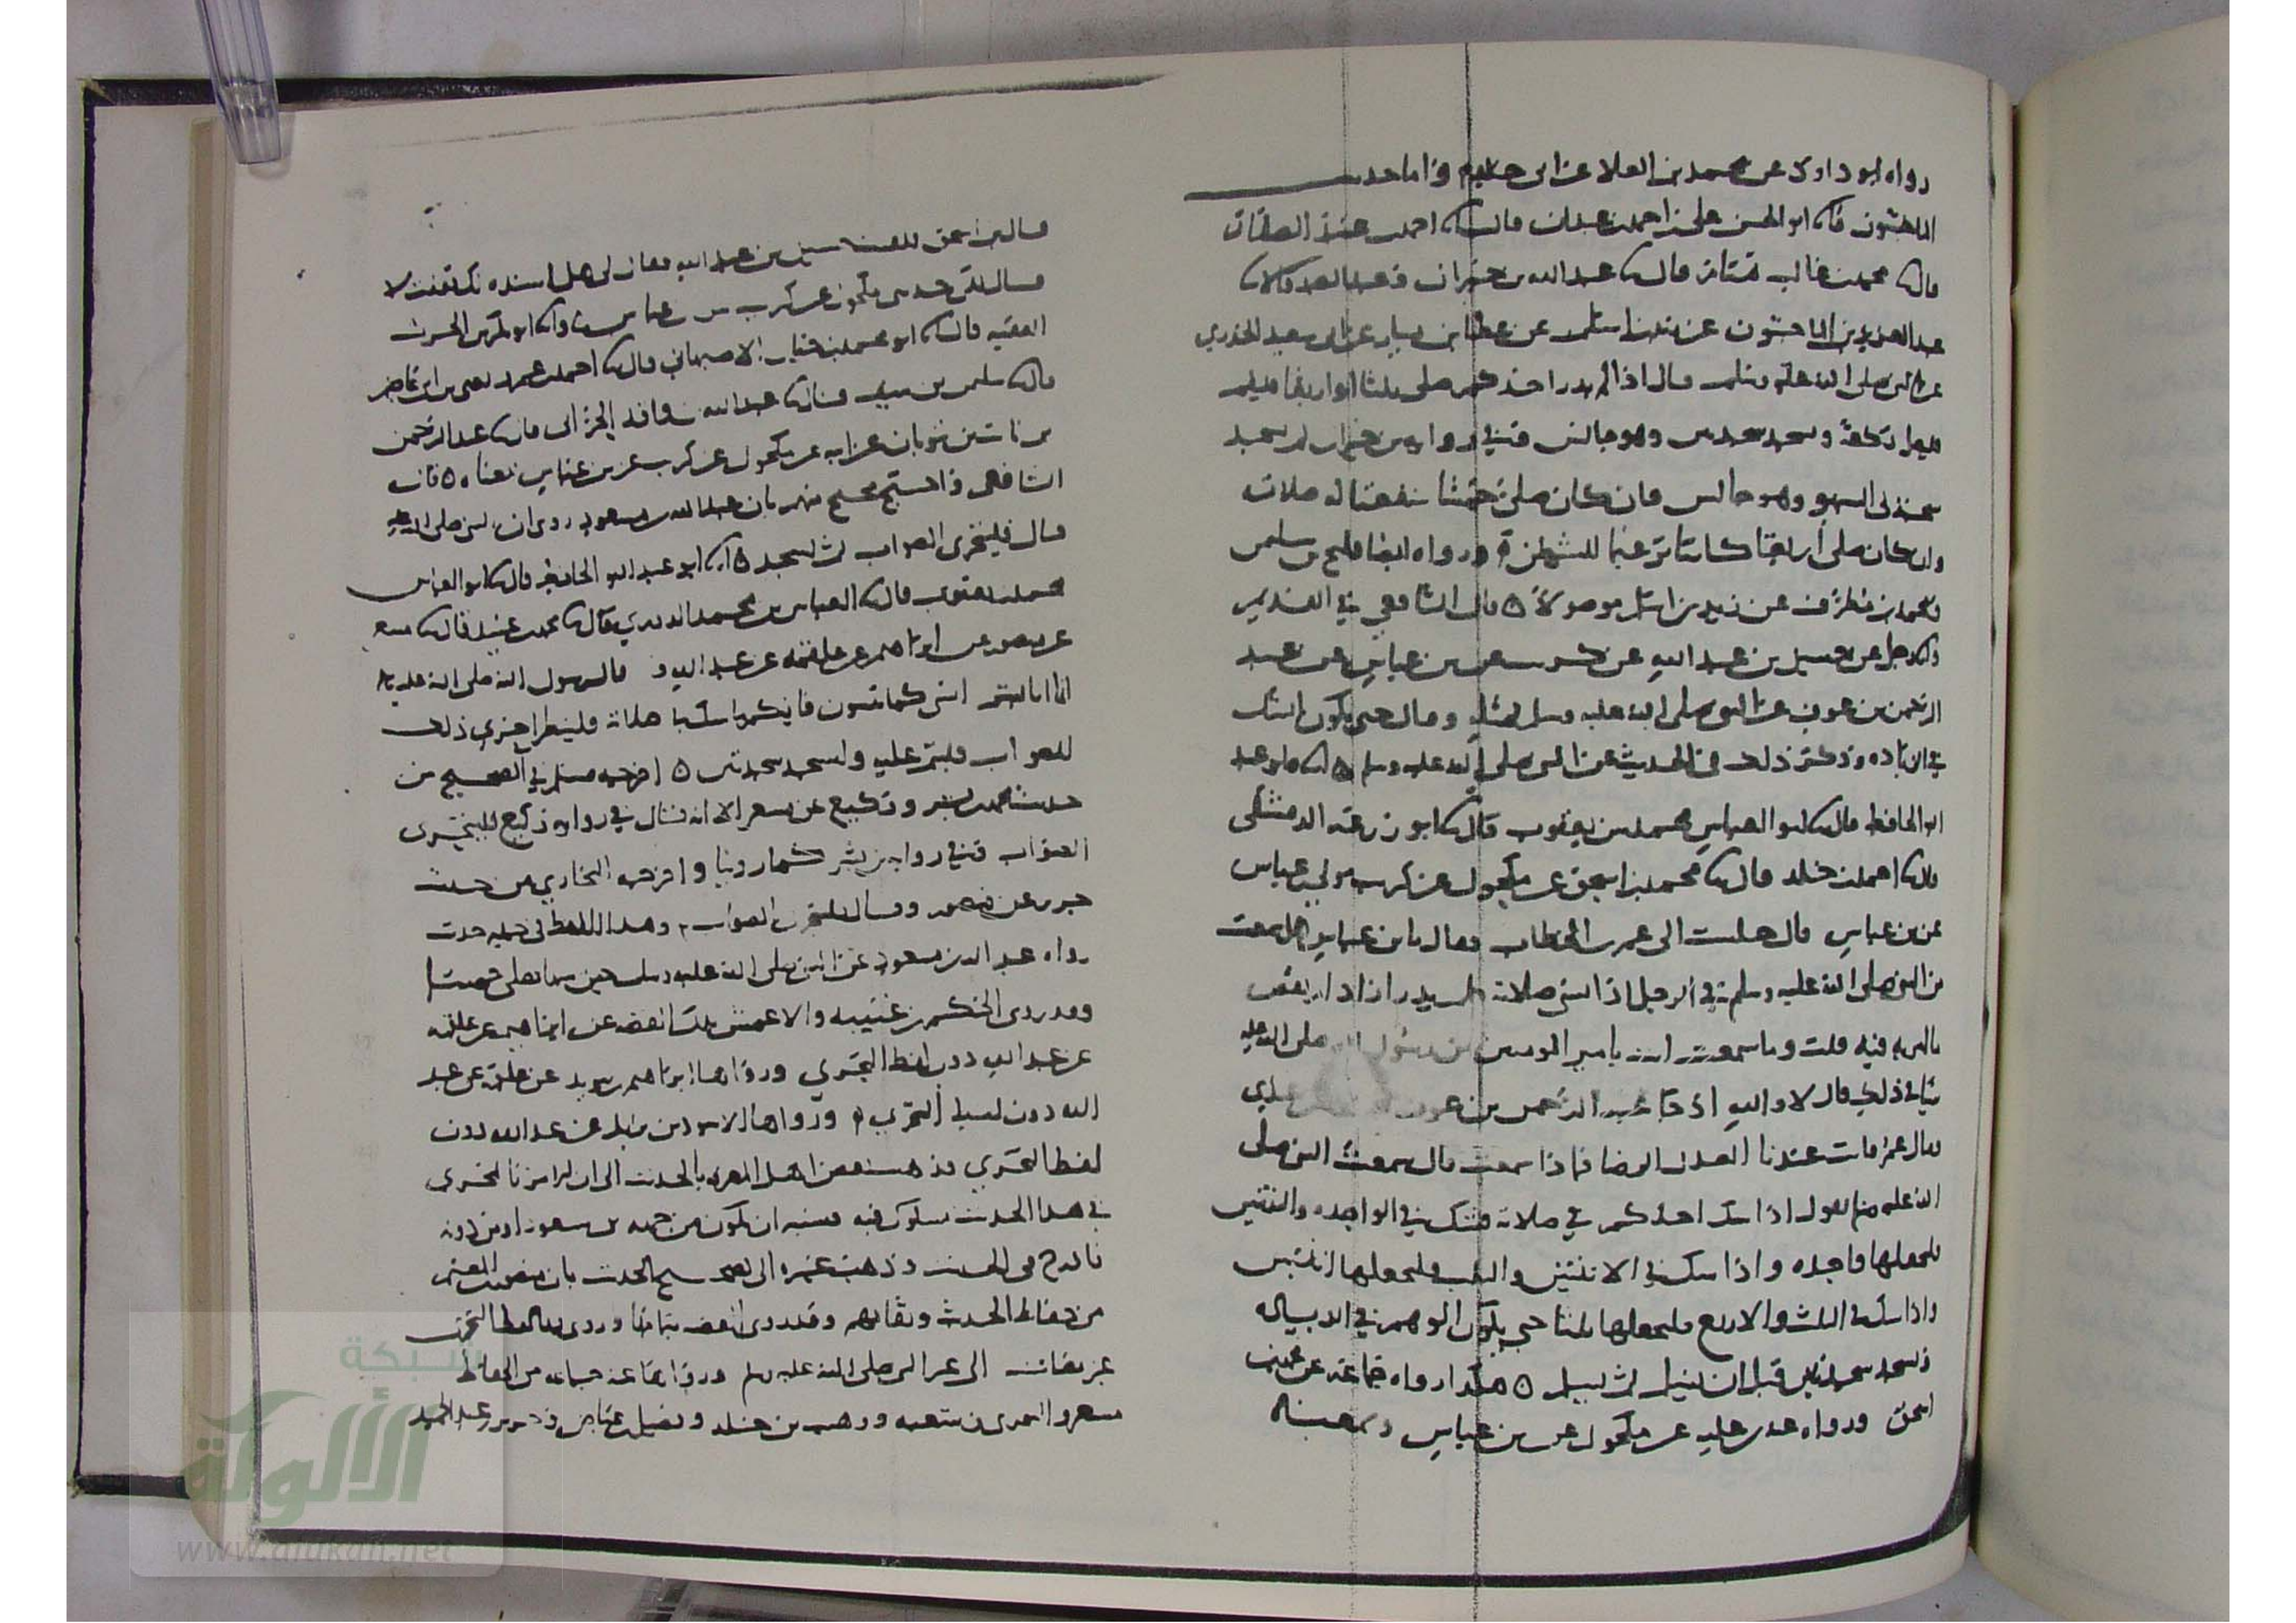 رواه ابو داود عن محمد بن العلا عن ابي خالد واما حديث
الماجشون فانا ابو الحسن علي بن احمد بن عبدان قال انا احمد بن عبيد الصفار
قال نا محمد بن غالب تمتام قال نا عبد الله بن خيران وعبد الصمد قالا نا
عبد العزيز بن الماجشون عن زيد بن اسلم عن عطا بن يسار عن ابي سعيد الخدري
عن النبي صلى الله عليه وسلم قال اذا لم يدر احدكم صلى ثلثا او اربعا فليقم
فليصل ركعة ويسجد سجدتين وهو جالس وفي رواية بن خيران ثم يسجد
سجدتي السهو وهو جالس فان كان صلى خمسا شفعتا له صلاته
وان كان صلى اربعا كانتا ترغيما للشيطن ورواه ايضا فليح بن سليمن
ومحمد بن مطرف عن زيد بن اسلم موصولا ٥ قال الشافعي في القديم
رجل عن حسين بن عبد الله عن بن عباس عن عبد
الرحمن بن عوف عن النبي صلى الله عليه وسلم بمثله وقال حتى يكون الشك
في الزيادة وذكر ذلك في الحديث عن النبي صلى الله عليه وسلم ٥ انا ابو عبد
الله الحافظ قال نا ابو العباس محمد بن يعقوب قال نا ابو زرعة الدمشقي
قال نا احمد بن خلد قال نا محمد بن اسحق عن مكحول عن كريب مولى بن عباس
عن بن عباس قال جلست الى عمر بن الخطاب فقال يا بن عباس هل سمعت
من النبي صلى الله عليه وسلم في الرجل اذا نسي صلاته فلم يدر ازاد ام نقص
ما امر به فيه قلت وما سمعت انت يا امير المومنين من رسول الله صلى الله عليه
في ذلك قال لا والله اذ جا عبد الرحمن بن عوف
فقال عمر فانت عندنا العدل الرضا فماذا سمعت قال سمعت النبي صلى
الله عليه وسلم يقول اذا شك احدكم في صلاته فشك في الواحدة والثنتين
فليجعلها واحدة واذا شك في الاثنتين والثلث فليجعلها اثنتين
واذا شك في الثلث والاربع فليجعلها ثلثا حتى يكون الوهم في الزيادة
ثم يسجد سجدتين قبل ان يسلم ثم يسلم ٥ هكذا رواه جماعة عن محمد بن
اسحق ورواه بن علية عن مكحول عن بن عباس
قال بن اسحق فلقيت حسين بن عبد الله فقال لي هل اسنده لك فقلت لا
فقال لكن حدثني مكحول عن كريب عن بن عباس وانا ابو بكر بن الحرث
الفقيه قال انا ابو محمد بن حيان الاصبهاني قال نا
قال نا سليمن بن سيف قال نا عبد الله بن واقد الحراني قال نا عبد الرحمن
بن ثابت بن ثوبان عن ابيه عن مكحول عن كريب عن بن عباس بمعناه ٥ قال
الشافعي واحتج محتج منهم بان عبد الله بن مسعود روى ان النبي صلى الله عليه
قال فليتحرى الصواب ثم ليسجد ٥ انا ابو عبد الله الحافظ قال نا ابو العباس
محمد بن يعقوب قال نا العباس بن محمد الدوري قال نا محمد بن عبيد قال نا مسعر
عن منصور عن ابراهيم عن علقمة عن عبد الله قال رسول الله صلى الله عليه
انما انا بشر انسى كما تنسون فايكم ما شك في صلاته فلينظر احرى ذلك
للصواب فليتم عليه وليسجد سجدتين ٥ اخرجه مسلم في الصحيح من
حديث محمد بن بشر ووكيع عن مسعر الا انه قال في رواية وكيع فليتحرى
الصواب وفي رواية بن بشر كما روينا واخرجه البخاري من حديث
جرير عن منصور وقال فليتحر الصواب وهذا اللفظ في جملة حديث
رواه عبد الله بن مسعود عن النبي صلى الله عليه وسلم حين سها فصلى خمسا
وقد روى الحكم بن عتيبة والاعمش تلك القصة عن ابراهيم عن علقمة
عن عبد الله دون لفظ التحري ورواها ابراهيم بن سويد عن علقمة عن عبد
الله دون لفظ التحري ورواها الاسود بن يزيد عن عبد الله دون
لفظ التحري فذهب بعض اهل المعرفة بالحديث الى ان الامر بالتحري
في هذا الحديث مشكوك فيه فيشبه ان يكون من جهة بن مسعود او من دونه
فادرج في الحديث وذهب غيره الى تصحيح الحديث بان منصور بن المعتمر
من حفاظ الحديث وثقاتهم وقد روى القصة بتمامها وروى فيها لفظ التحري
غير مضاف الى غير النبي صلى الله عليه وسلم ورواها عنه جماعة من الحفاظ
مسعر والثوري وشعبة ووهيب بن خلد وفضيل بن عياض وجرير بن عبد الحميد
شبكة
الألوكة
www.alukah.net